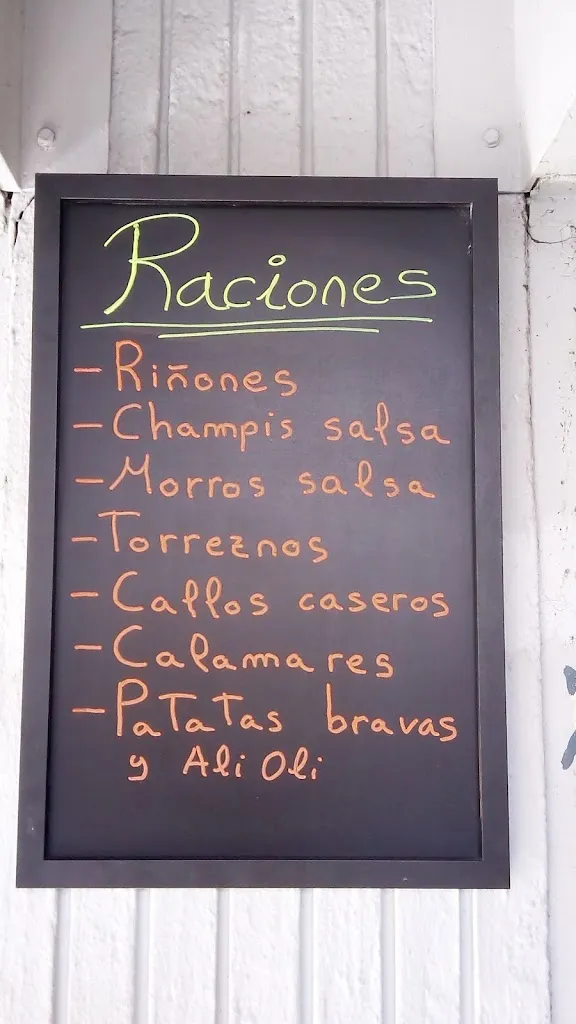 Raciones
- Riñones
- Champis salsa
- Morros salsa
- Torreznos
- Callos caseros
- Calamares
- Patatas bravas
y Ali Oli